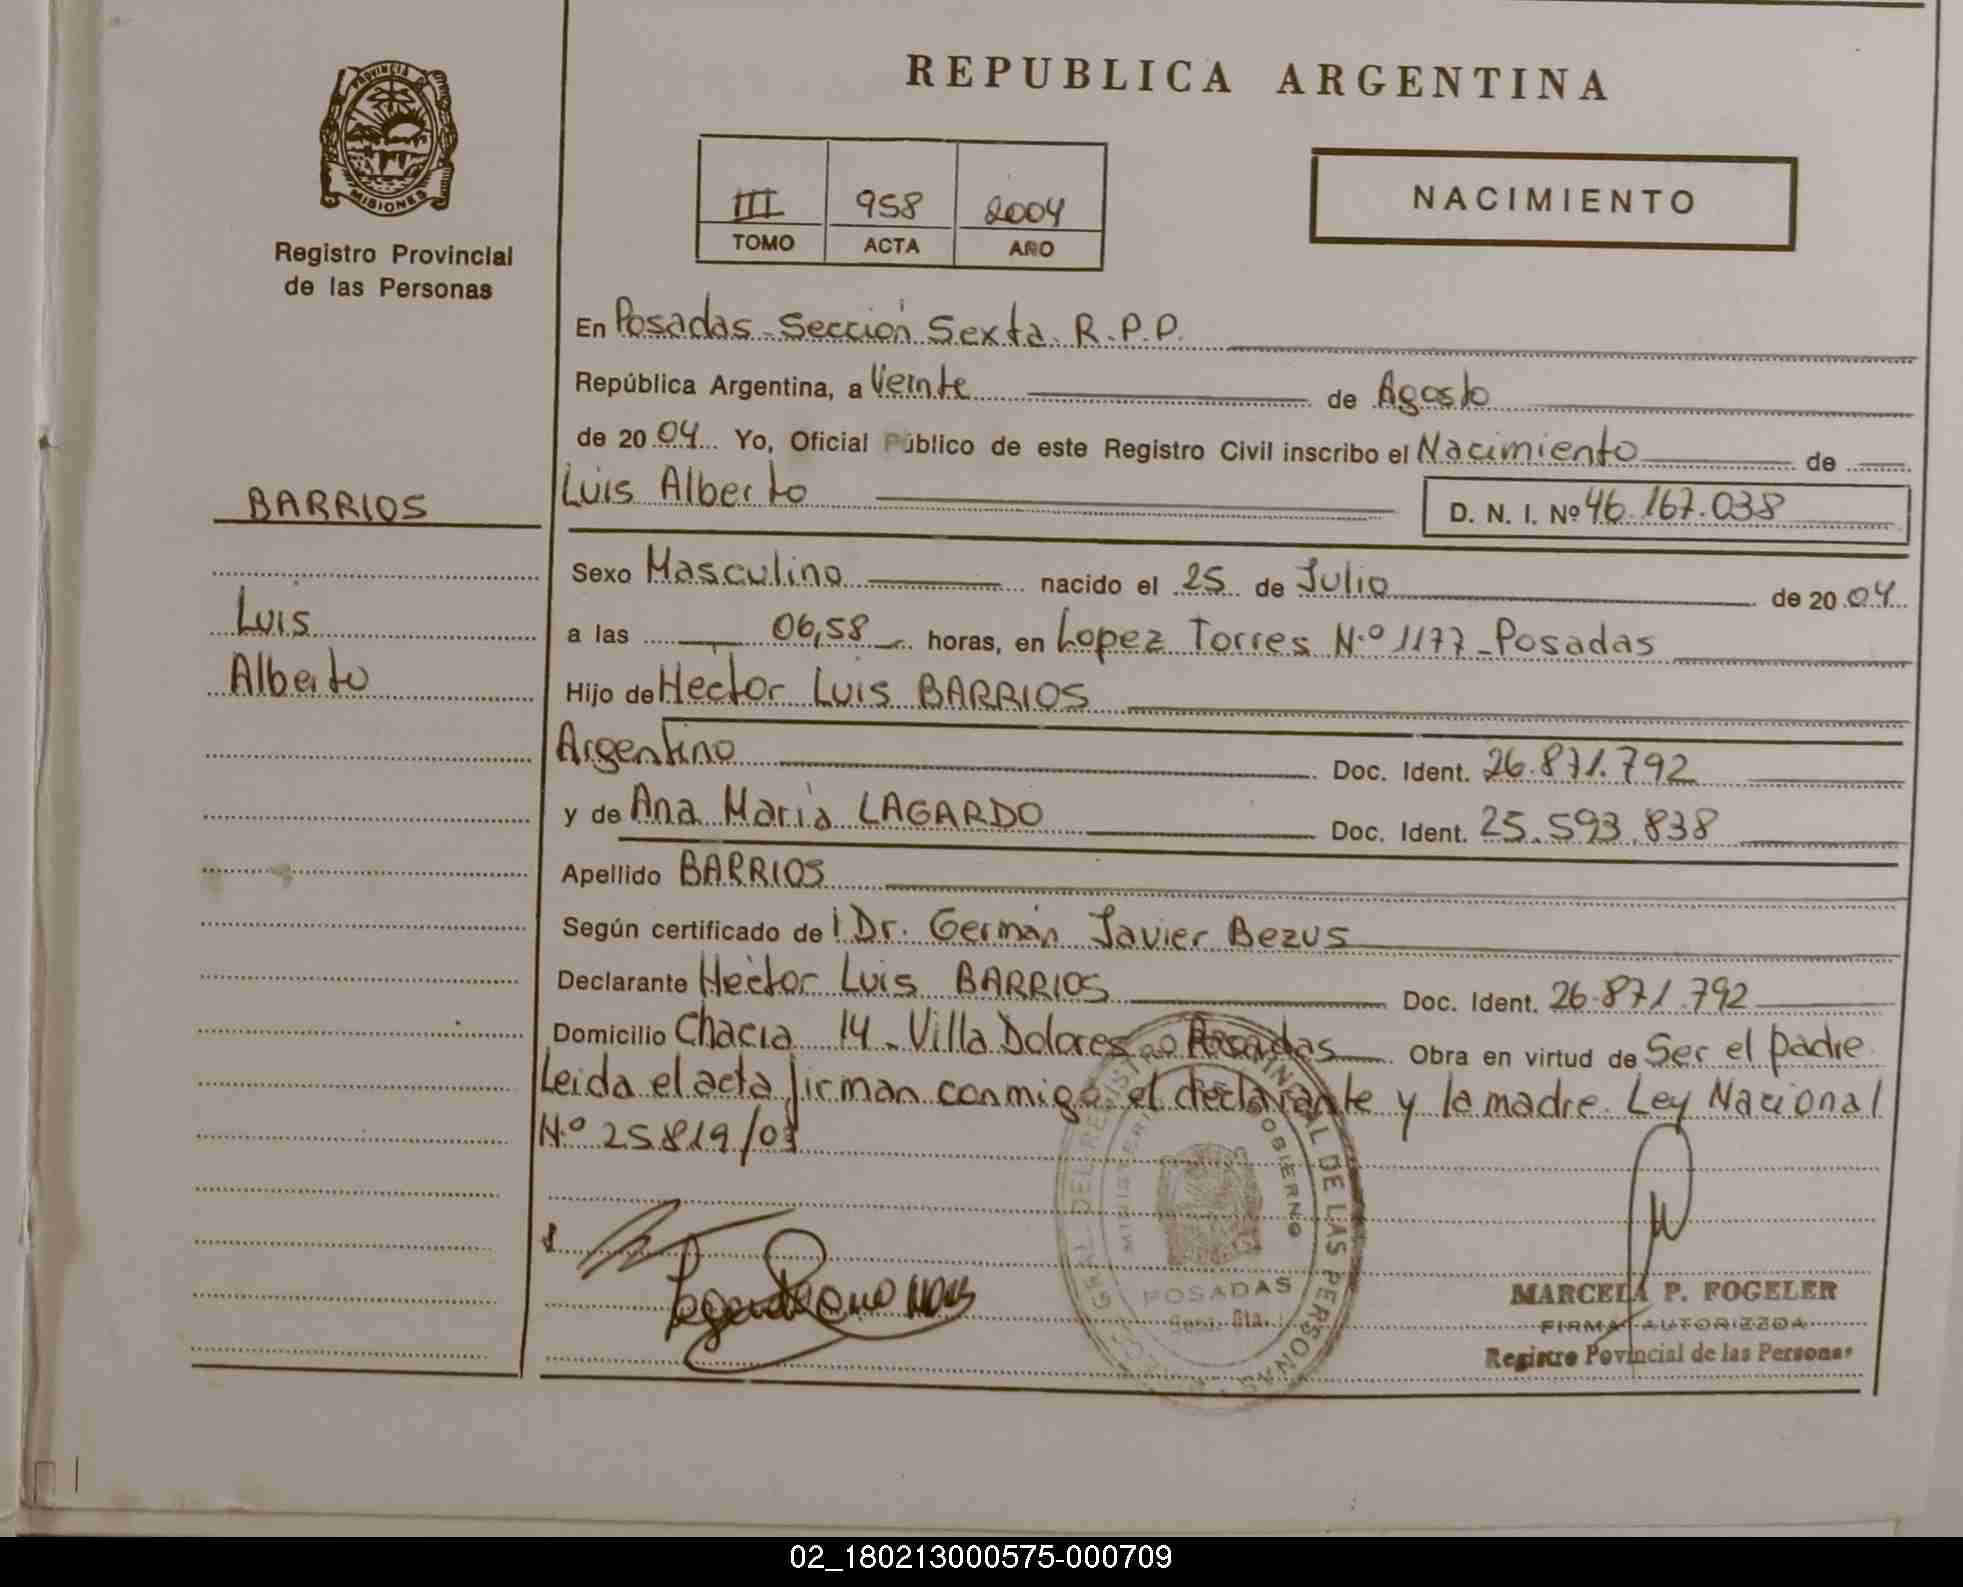 REPUBLICA ARGENTINA
PROVINCIA DE
MISIONES
Registro Provincial
de las Personas
III 958 2004
TOMO ACTA AÑO
NACIMIENTO
BARRIOS
Luis
Alberto
En Posadas - Sección Sexta. R.P.P.
República Argentina, a Veinte de Agosto
de 2004 Yo, Oficial Público de este Registro Civil inscribo el Nacimiento de
Luis Alberto D. N. I. Nº 46.167.038
Sexo Masculino nacido el 25 de Julio de 2004
a las 06,58 horas, en Lopez Torres N.º 1177 - Posadas
Hijo de Hector Luis BARRIOS
Argentino Doc. Ident. 26.871.792
y de Ana Maria LAGARDO Doc. Ident. 25.593.838
Apellido BARRIOS
Según certificado de l Dr. Germán Javier Bezus
Declarante Hector Luis BARRIOS Doc. Ident. 26.871.792
Domicilio Chacra 14 - Villa Dolores - Posadas Obra en virtud de Ser el padre.
Leida el acta firman conmigo el declarante y la madre. Ley Nacional
N.º 25.819/03
GRAL. DEL REGISTRO PROVINCIAL DE LAS PERSONAS
MINISTERIO GOBIERNO
POSADAS
MARCELA P. FOGELER
FIRMA AUTORIZADA
Registro Povincial de las Personas
02_180213000575-000709